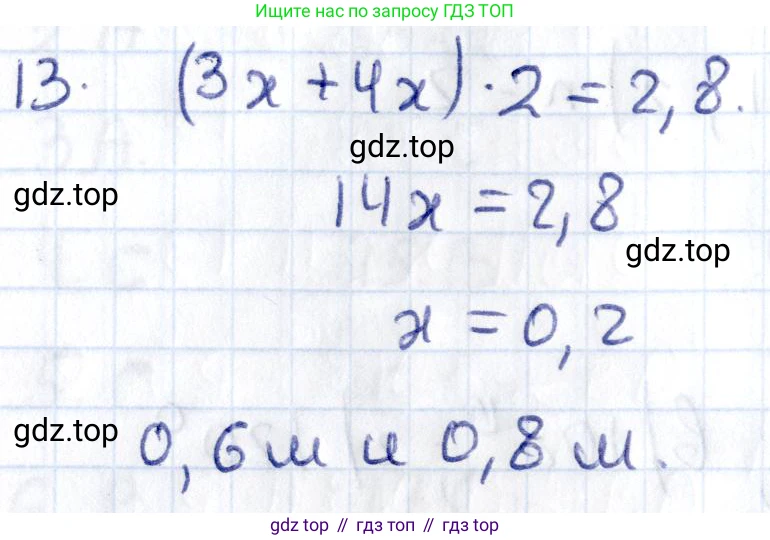 Ищите нас по запросу ГДЗ ТОП
13. (3x + 4x) · 2 = 2,8.
gdz.top
gdz.top
14x = 2,8
gdz.top
x = 0,2
gdz.top
0,6 м и 0,8 м.
gdz top // гдз топ // гдз top